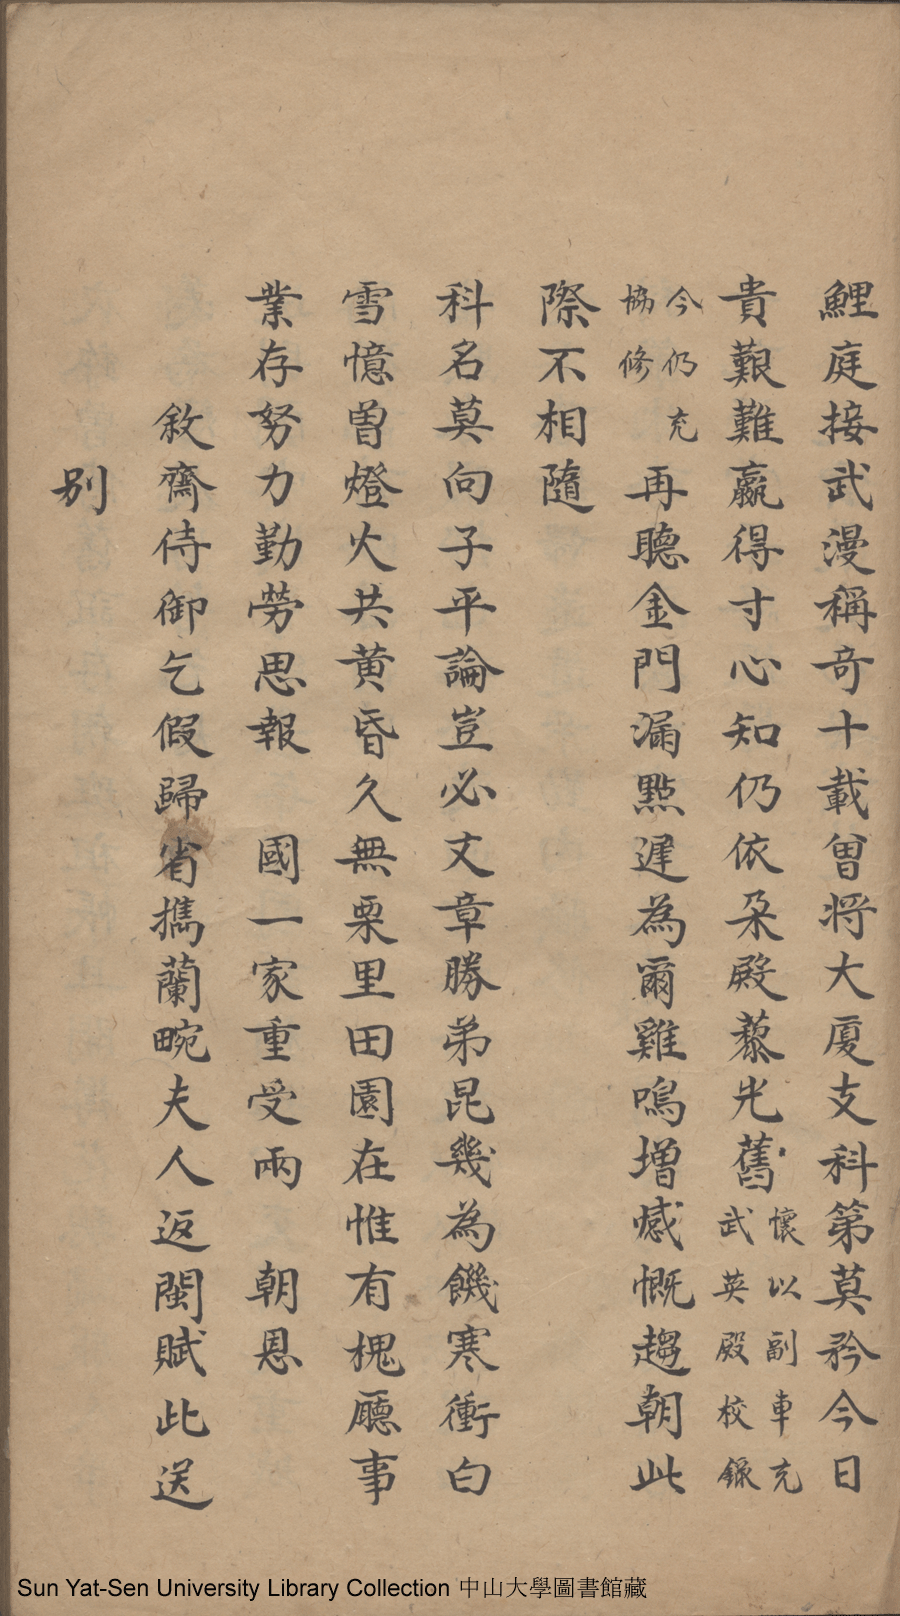 鯉庭接武漫稱奇十載曾將大厦支科第莫矜今日
貴艱難贏得寸心知仍依朶殿藜光舊懷以副車充武英殿校錄
今仍充協修再聽金門漏點遲為爾雞鳴增感慨趨朝此
際不相隨
科名莫向子平論豈必文章勝弟昆幾為饑寒衝白
雪憶曽燈火共黄昏久無栗里田園在惟有槐廳事
業存努力勤勞思報 國一家重受兩 朝恩
敘齋侍御乞假歸省攜蘭畹夫人返閩賦此送
别
Sun Yat-Sen University Library Collection 中山大學圖書館藏